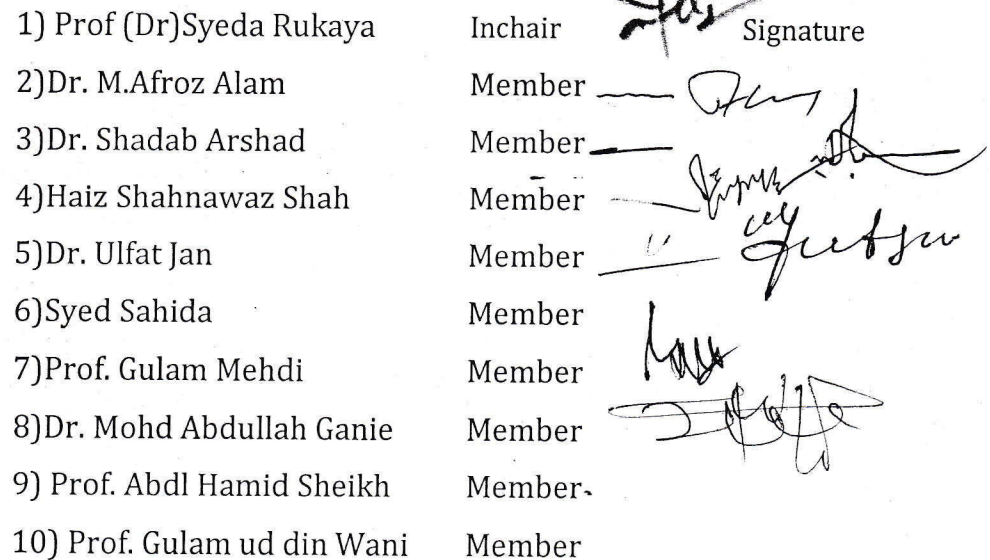 1) Prof (Dr)Syeda Rukaya Inchair Signature
2)Dr. M.Afroz Alam Member
3)Dr. Shadab Arshad Member
4)Haiz Shahnawaz Shah Member
5)Dr. Ulfat Jan Member
6)Syed Sahida Member
7)Prof. Gulam Mehdi Member
8)Dr. Mohd Abdullah Ganie Member
9) Prof. Abdl Hamid Sheikh Member
10) Prof. Gulam ud din Wani Member